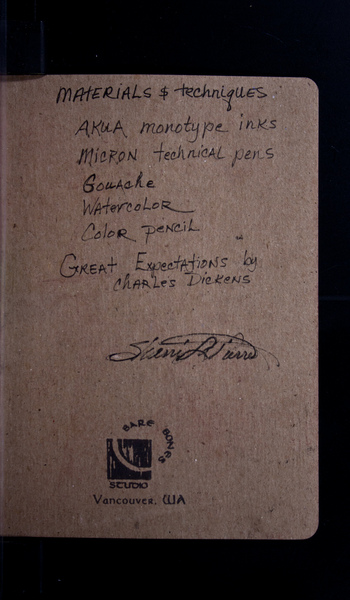 MATERIALS & techniques
AKUA monotype inks
MICRON technical pens
Gouache
Watercolor
Color pencil
Great Expectations by
Charles Dickens
BARE BONES
STUDIO
Vancouver, WA